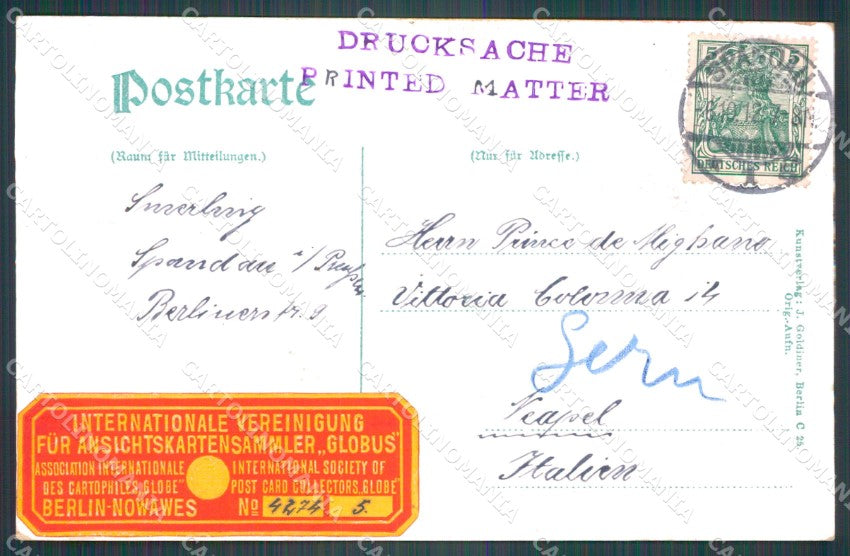 DRUCKSACHE
PRINTED MATTER
Postkarte
(Raum für Mitteilungen.)
(Nur für Adresse.)
DEUTSCHES REICH
Smerling
Spandau i/
Berlinerstr. 9
Herrn Prince de Mighano
Vittoria Colonna 14
Neapel
Italien
Kunstverlag: J. Goldiner, Berlin C 25
Orig.-Aufn.
INTERNATIONALE VEREINIGUNG
FÜR ANSICHTSKARTENSAMMLER „GLOBUS"
ASSOCIATION INTERNATIONALE
DES CARTOPHILES „GLOBE"
INTERNATIONAL SOCIETY OF
POST CARD COLLECTORS „GLOBE"
BERLIN-NOWAWES
No 4274 5.
CARTOLINOMANIA